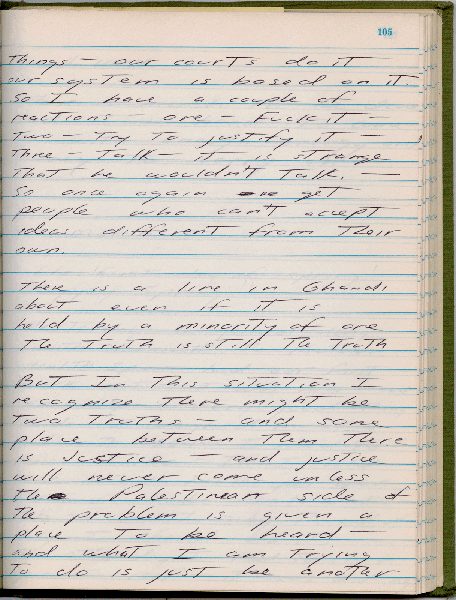 105
Things - our courts do it -
our system is based on it.
So I have a couple of
reactions - one - Fuck it -
Two - Try To justify it -
Three - Talk - it is strange
That he wouldn't Talk. -
So once again we get
people who can't accept
ideas different from Their
own.
There is a line in Ghandi
about even if it is
held by a minority of one
The Truth is still The Truth
But In This situation I
recognize There might be
Two Truths - and some
place between Them There
is Justice - and justice
will never come unless
the Palestinean side of
The problem is given a
place To be heard -
and what I am Trying
To do is just be another